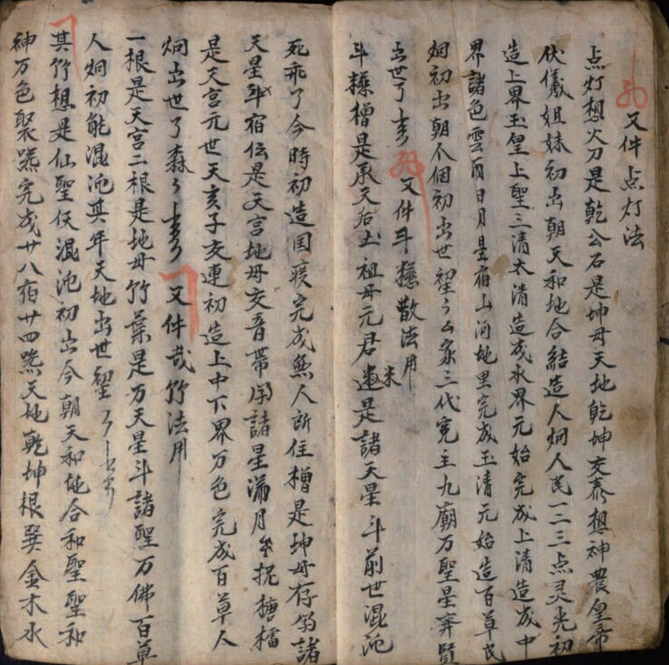 又件点灯法
点灯想火刀是乾公石是坤母天地乾坤交泰想神農皇帝
伏儀姐妹初出朝天和地合結造人烟人民一二三点灵光初
造上界玉皇上聖三清太清造成水界元始完成上清造成中
界諸色雲雨日月星宿山河地里完成玉清元始造百草民
烟初出朝个個初出世 家三代宽主九廟万聖星 賢
出世了 又件斗 散法用
斗 橧是承天后土祖母元君 米是諸天星斗前世混沌
死 了今時初造国 完成無人所住橧是坤母存 諸
天星斗宿伝是天宫地母交音帶 諸星滿月
是天宫元世天亥子交連初造上中下界万色完成百草人
烟出世了 又件 竹法用
一根是天宫二根是地母竹葉是万天星斗諸聖万佛百草
人烟初能混沌其年天地出世
其竹想是仙聖伏混沌初出今朝天和地合和聖聖和
神万色聚 完成廿八宿廿四 天地乾坤根巽金木水